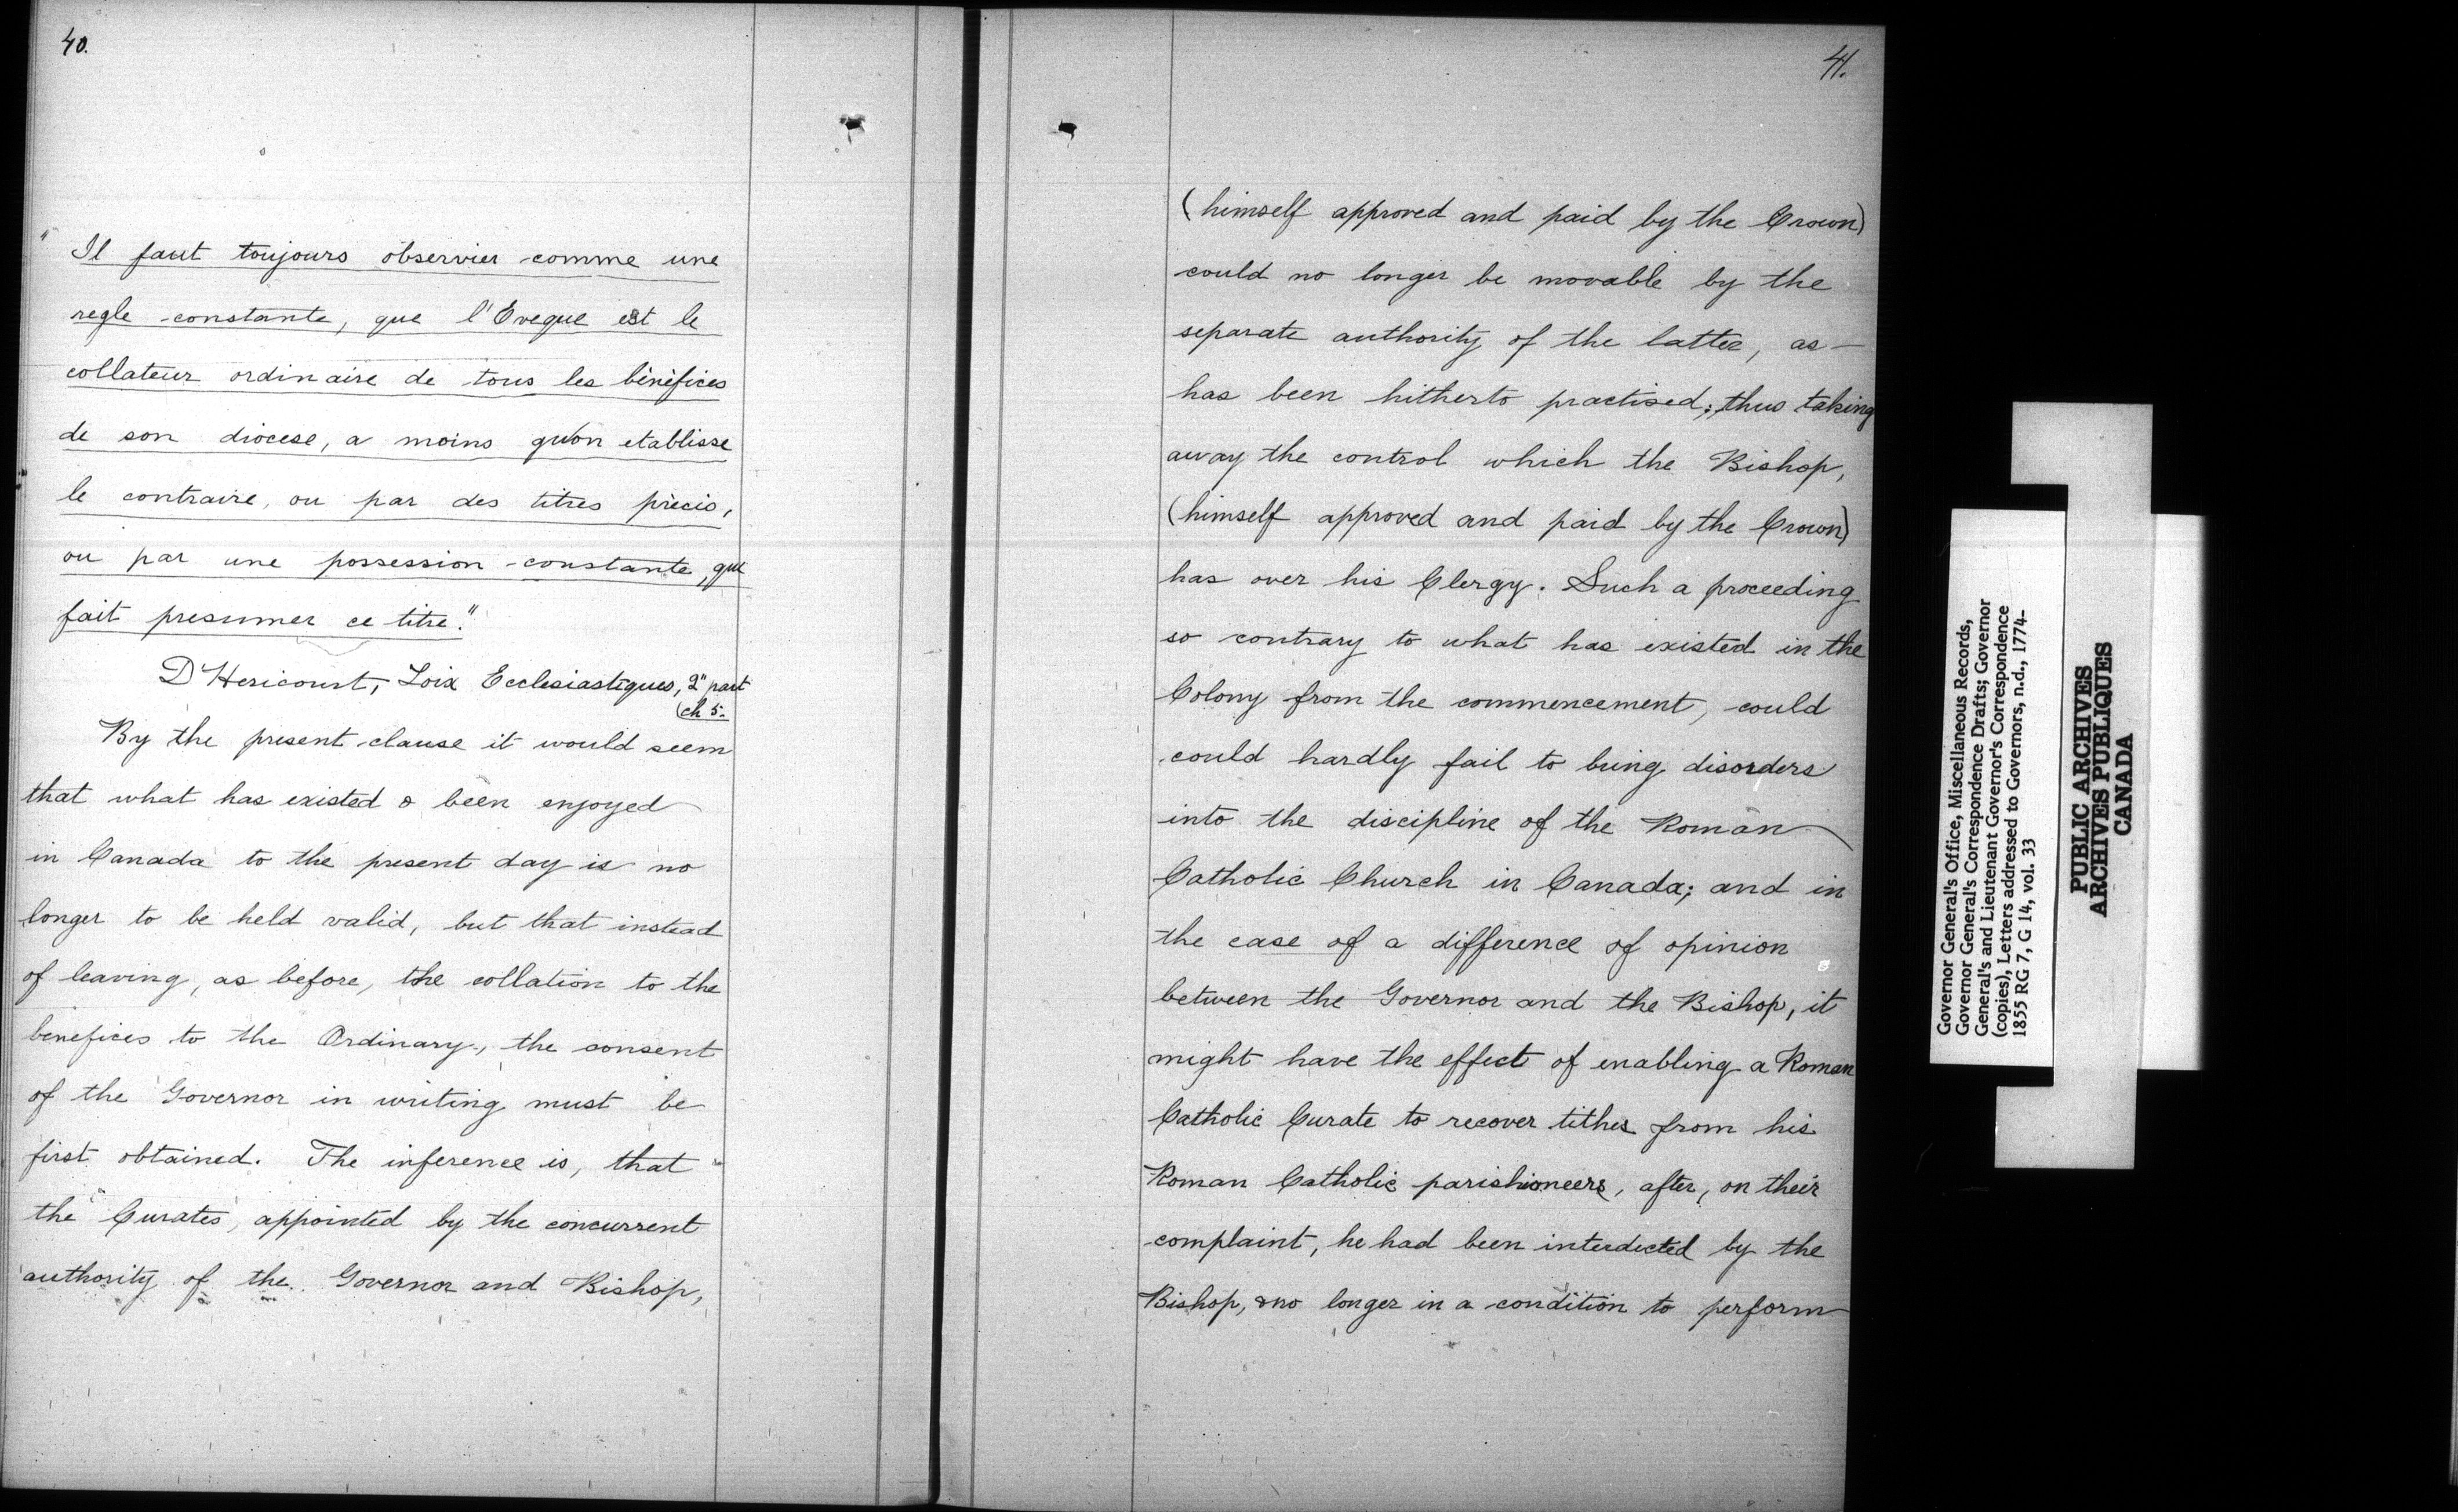 40.
" Il faut toujours observier comme une
regle constante, que l'Eveque est le
collateur ordinaire de tous les bénéfices
de son diocese, a moins qu'on etablisse
le contraire, ou par des titres précis,
ou par une possession constante, qui
fait presumer ce titre."
D'Hericourt, Loix Ecclesiastiques, 2" part
(ch 5.
By the present clause it would seem
that what has existed & been enjoyed
in Canada to the present day is no
longer to be held valid, but that instead
of leaving, as before, the collation to the
benefices to the Ordinary, the consent
of the Governor in writing must be
first obtained. The inference is, that
the "Curates, appointed by the concurrent
authority of the Governor and Bishop,
41.
(himself approved and paid by the Crown)
could no longer be movable by the
separate authority of the latter, as
has been hitherto practised; thus taking
away the control which the Bishop,
(himself approved and paid by the Crown)
has over his Clergy. Such a proceeding
so contrary to what has existed in the
Colony from the commencement, could
could hardly fail to bring disorders
into the discipline of the Roman
Catholic Church in Canada; and in
the case of a difference of opinion
between the Governor and the Bishop, it
might have the effect of enabling a Roman
Catholic Curate to recover tithes from his
Roman Catholic parishioneers, after, on their
complaint, he had been interdicted by the
Bishop, & no longer in a condition to perform
Governor General's Office, Miscellaneous Records,
Governor General's Correspondence Drafts; Governor
General's and Lieutenant Governor's Correspondence
(copies), Letters addressed to Governors, n.d., 1774-
1855 RG 7, G 14, vol. 33
PUBLIC ARCHIVES
ARCHIVES PUBLIQUES
CANADA